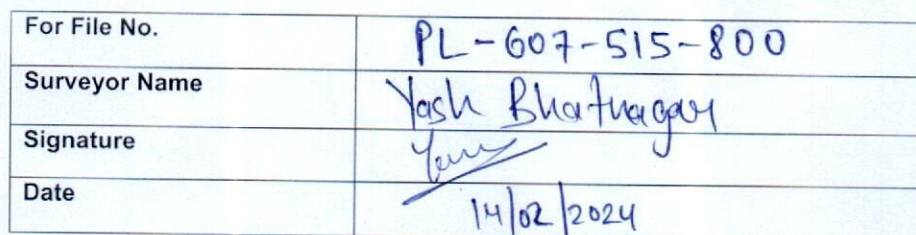 For File No. PL-607-515-800
Surveyor Name Yash Bhatnagar
Signature
Date 14/02/2024